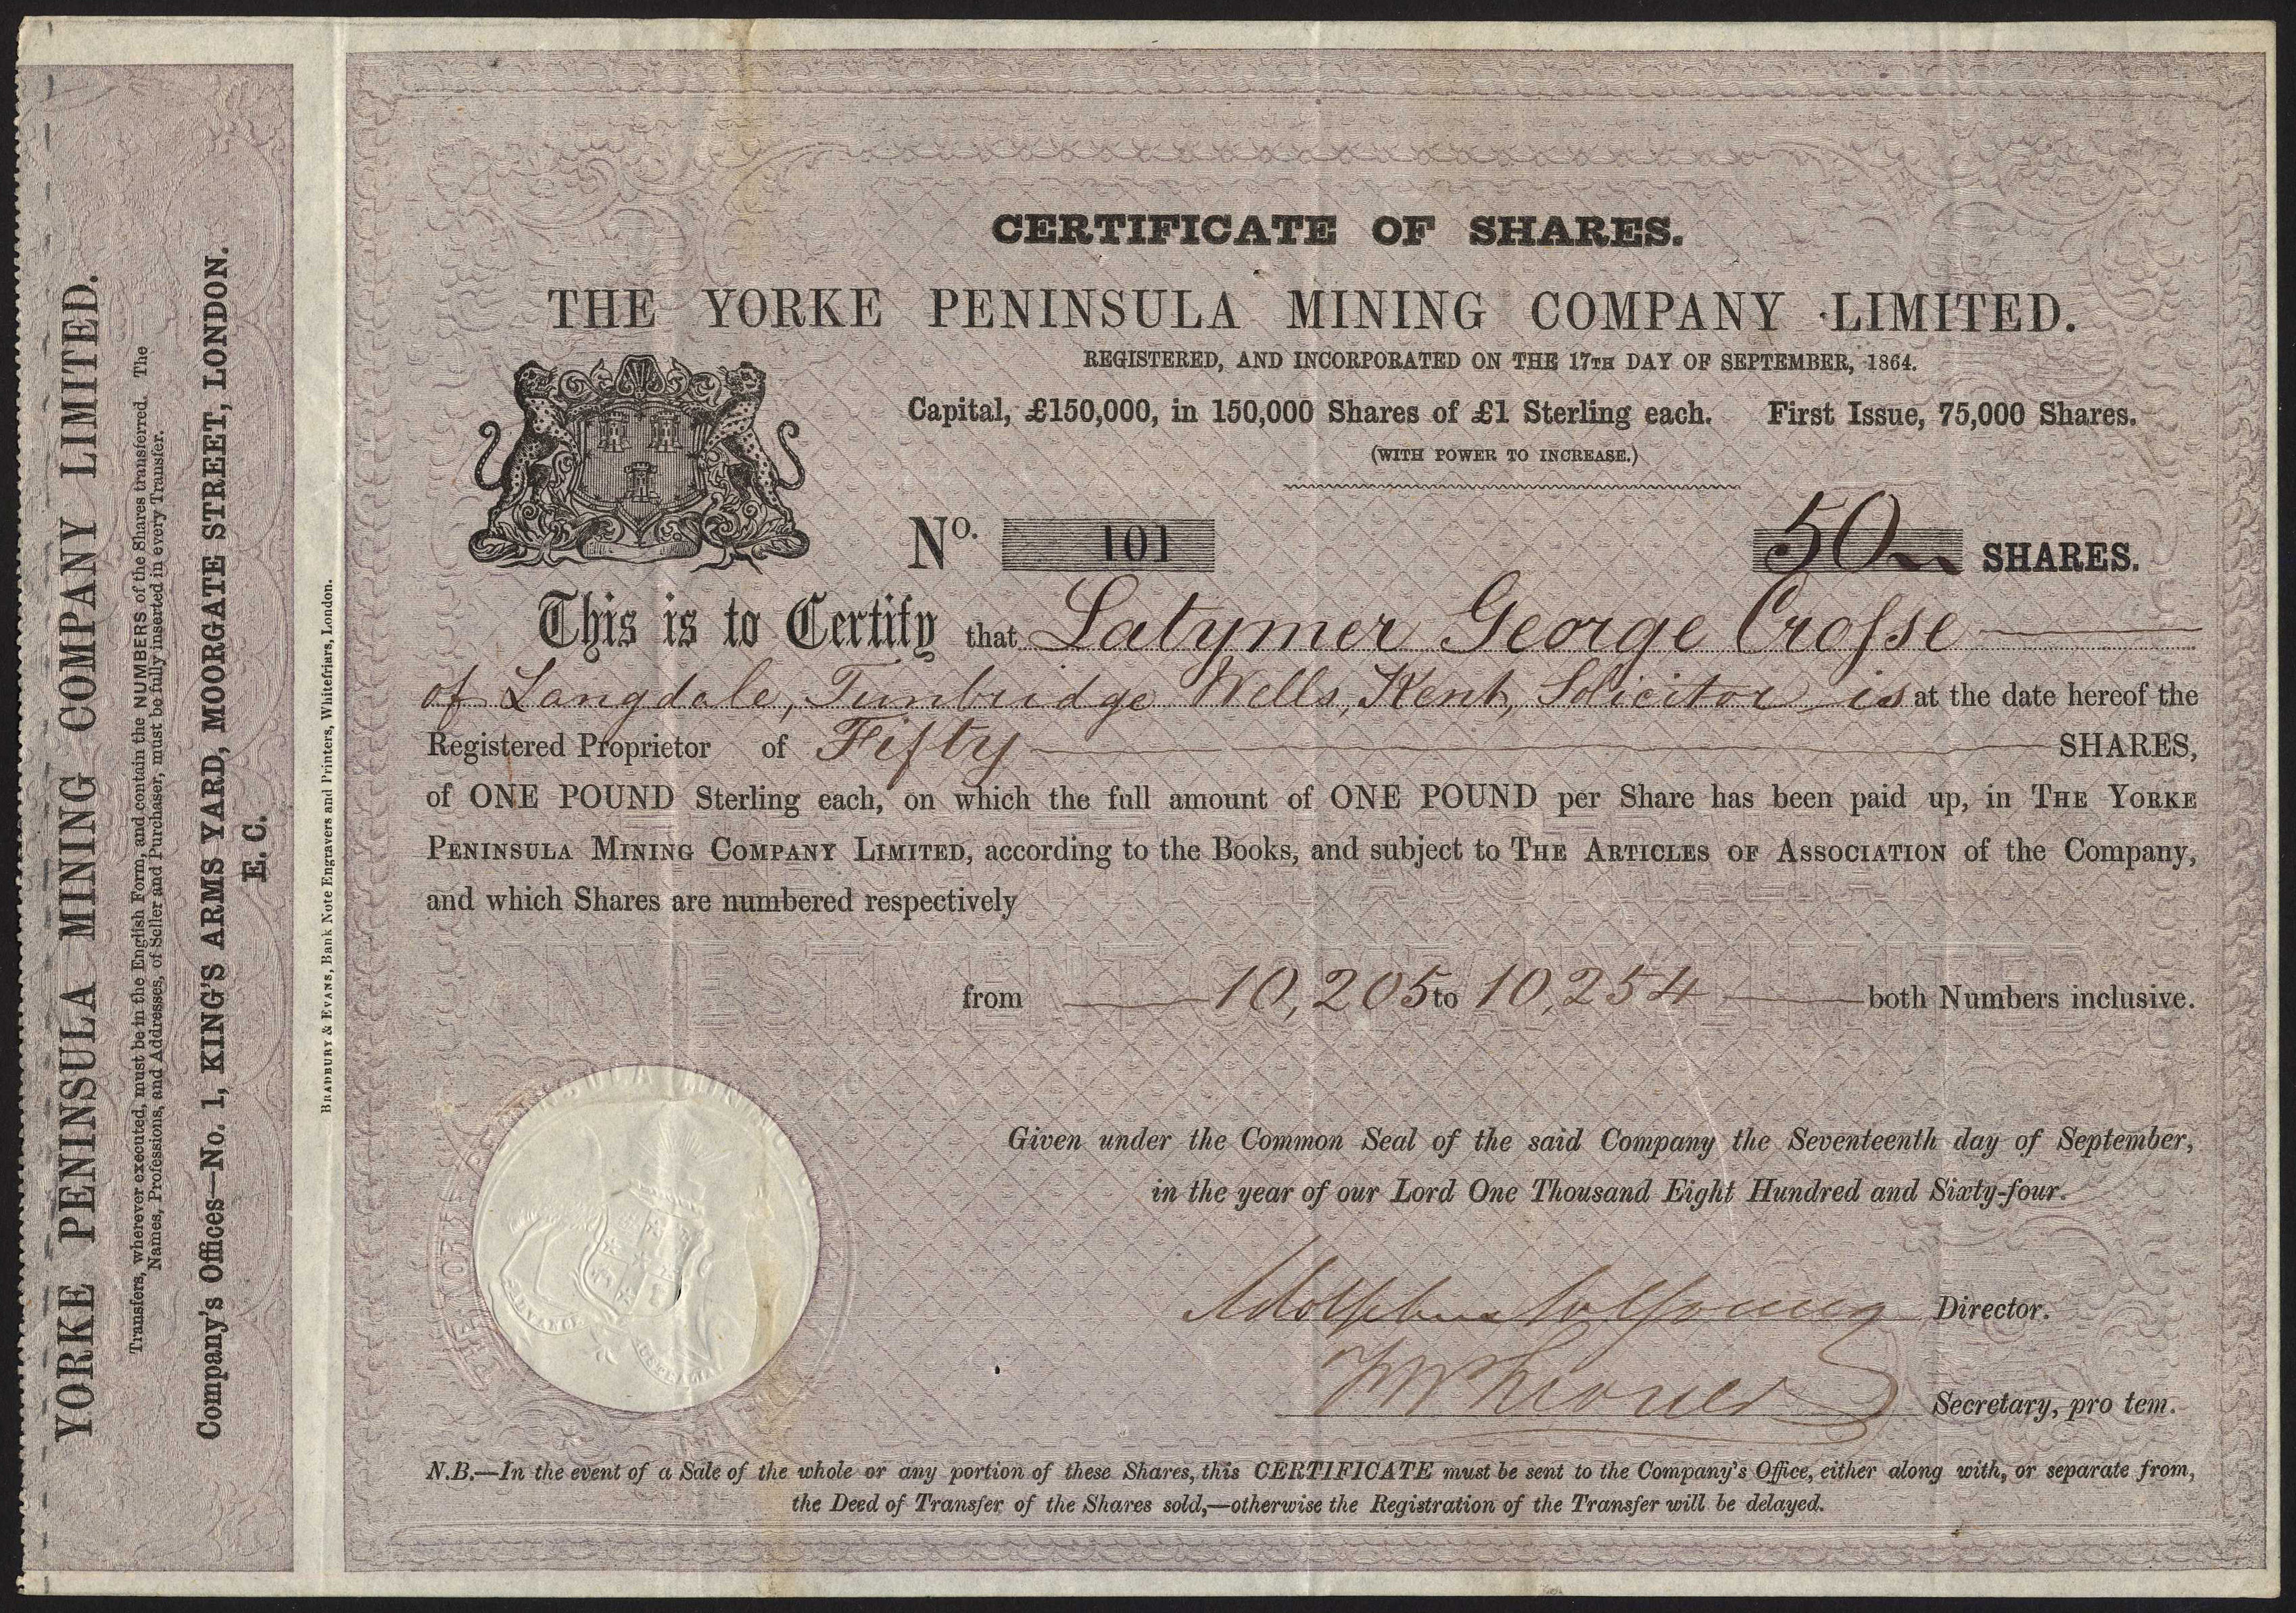 YORKE PENINSULA MINING COMPANY LIMITED.
Transfers, wherever executed, must be in the English Form, and contain the NUMBERS of the Shares transferred. The
Names, Professions, and Addresses, of Seller and Purchaser, must be fully inserted in every Transfer.
Company's Offices—No. 1, KING'S ARMS YARD, MOORGATE STREET, LONDON.
E. C.
BRADBURY & EVANS, Bank Note Engravers and Printers, Whitefriars, London.
CERTIFICATE OF SHARES.
THE YORKE PENINSULA MINING COMPANY LIMITED.
REGISTERED, AND INCORPORATED ON THE 17TH DAY OF SEPTEMBER, 1864.
Capital, £150,000, in 150,000 Shares of £1 Sterling each. First Issue, 75,000 Shares.
(WITH POWER TO INCREASE.)
No. 101 50 SHARES.
This is to Certify that Latymer George Crosse
of Langdale, Tunbridge Wells, Kent, Solicitor is at the date hereof the
Registered Proprietor of Fifty SHARES,
of ONE POUND Sterling each, on which the full amount of ONE POUND per Share has been paid up, in THE YORKE
PENINSULA MINING COMPANY LIMITED, according to the Books, and subject to THE ARTICLES OF ASSOCIATION of the Company,
and which Shares are numbered respectively
from 10,205 to 10,254 both Numbers inclusive.
Given under the Common Seal of the said Company the Seventeenth day of September,
in the year of our Lord One Thousand Eight Hundred and Sixty-four.
Director.
Secretary, pro tem.
ADVANCE
AUSTRALIA
N.B.—In the event of a Sale of the whole or any portion of these Shares, this CERTIFICATE must be sent to the Company's Office, either along with, or separate from,
the Deed of Transfer of the Shares sold,—otherwise the Registration of the Transfer will be delayed.